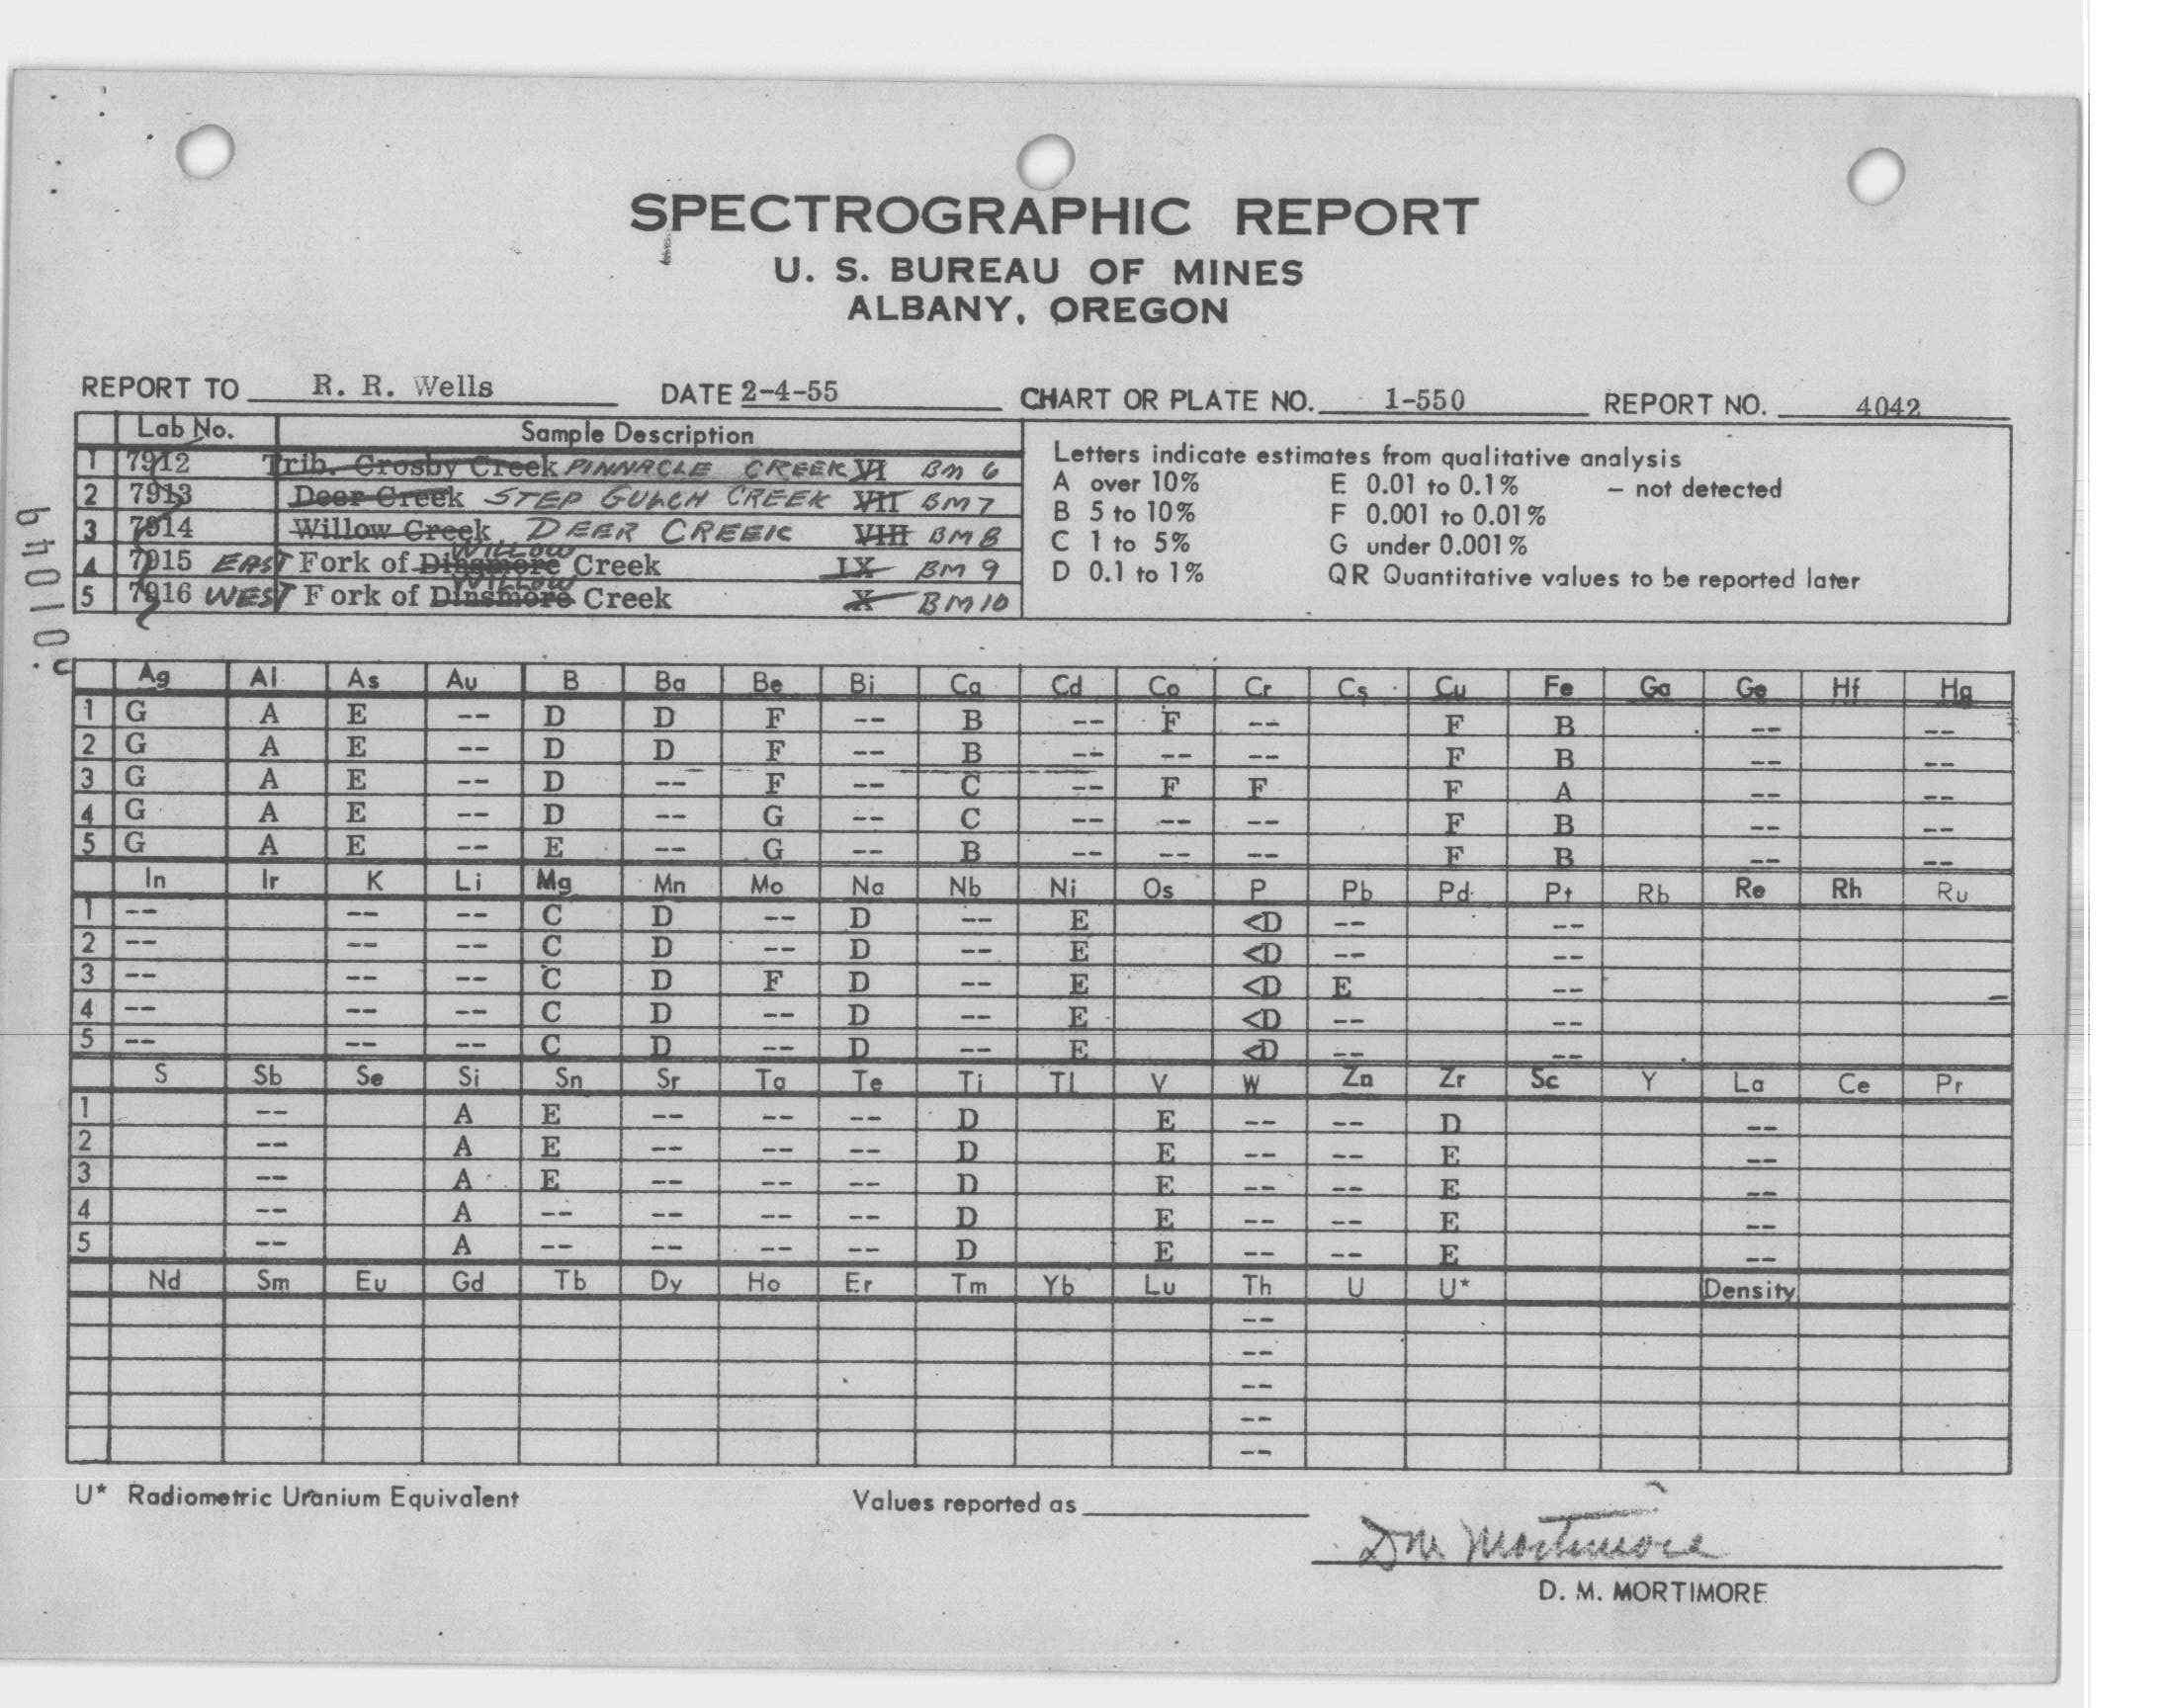 SPECTROGRAPHIC REPORT
U. S. BUREAU OF MINES
ALBANY, OREGON
REPORT TO R. R. Wells DATE 2-4-55 CHART OR PLATE NO. 1-550 REPORT NO. 4042
Lab No. Sample Description
1 7912 Trib. Crosby Creek PINNACLE CREEK VI BM 6
2 7913 Deer Creek STEP GULCH CREEK VII BM7
3 7914 Willow Creek DEER CREEK VIII BM8
4 7915 EAST Fork of Dinsmore WILLOW Creek IX BM 9
5 7916 WEST Fork of Dinsmore WILLOW Creek X BM10
Letters indicate estimates from qualitative analysis
A over 10% E 0.01 to 0.1% – not detected
B 5 to 10% F 0.001 to 0.01%
C 1 to 5% G under 0.001%
D 0.1 to 1% QR Quantitative values to be reported later
Ag Al As Au B Ba Be Bi Ca Cd Co Cr Cs Cu Fe Ga Ge Hf Hg
1 G A E -- D D F -- B -- F -- F B -- --
2 G A E -- D D F -- B -- -- -- F B -- --
3 G A E -- D -- F -- C -- F F F A -- --
4 G A E -- D -- G -- C -- -- -- F B -- --
5 G A E -- E -- G -- B -- -- -- F B -- --
In Ir K Li Mg Mn Mo Na Nb Ni Os P Pb Pd Pt Rb Re Rh Ru
1 -- -- -- C D -- D -- E <D -- --
2 -- -- -- C D -- D -- E <D -- --
3 -- -- -- C D F D -- E <D E --
4 -- -- -- C D -- D -- E <D -- --
5 -- -- -- C D -- D -- E <D -- --
S Sb Se Si Sn Sr Ta Te Ti Tl V W Zn Zr Sc Y La Ce Pr
1 -- A E -- -- -- D E -- -- D --
2 -- A E -- -- -- D E -- -- E --
3 -- A E -- -- -- D E -- -- E --
4 -- A -- -- -- -- D E -- -- E --
5 -- A -- -- -- -- D E -- -- E --
Nd Sm Eu Gd Tb Dy Ho Er Tm Yb Lu Th U U* Density
--
--
--
--
--
U* Radiometric Uranium Equivalent Values reported as
DM Mortimore
D. M. MORTIMORE